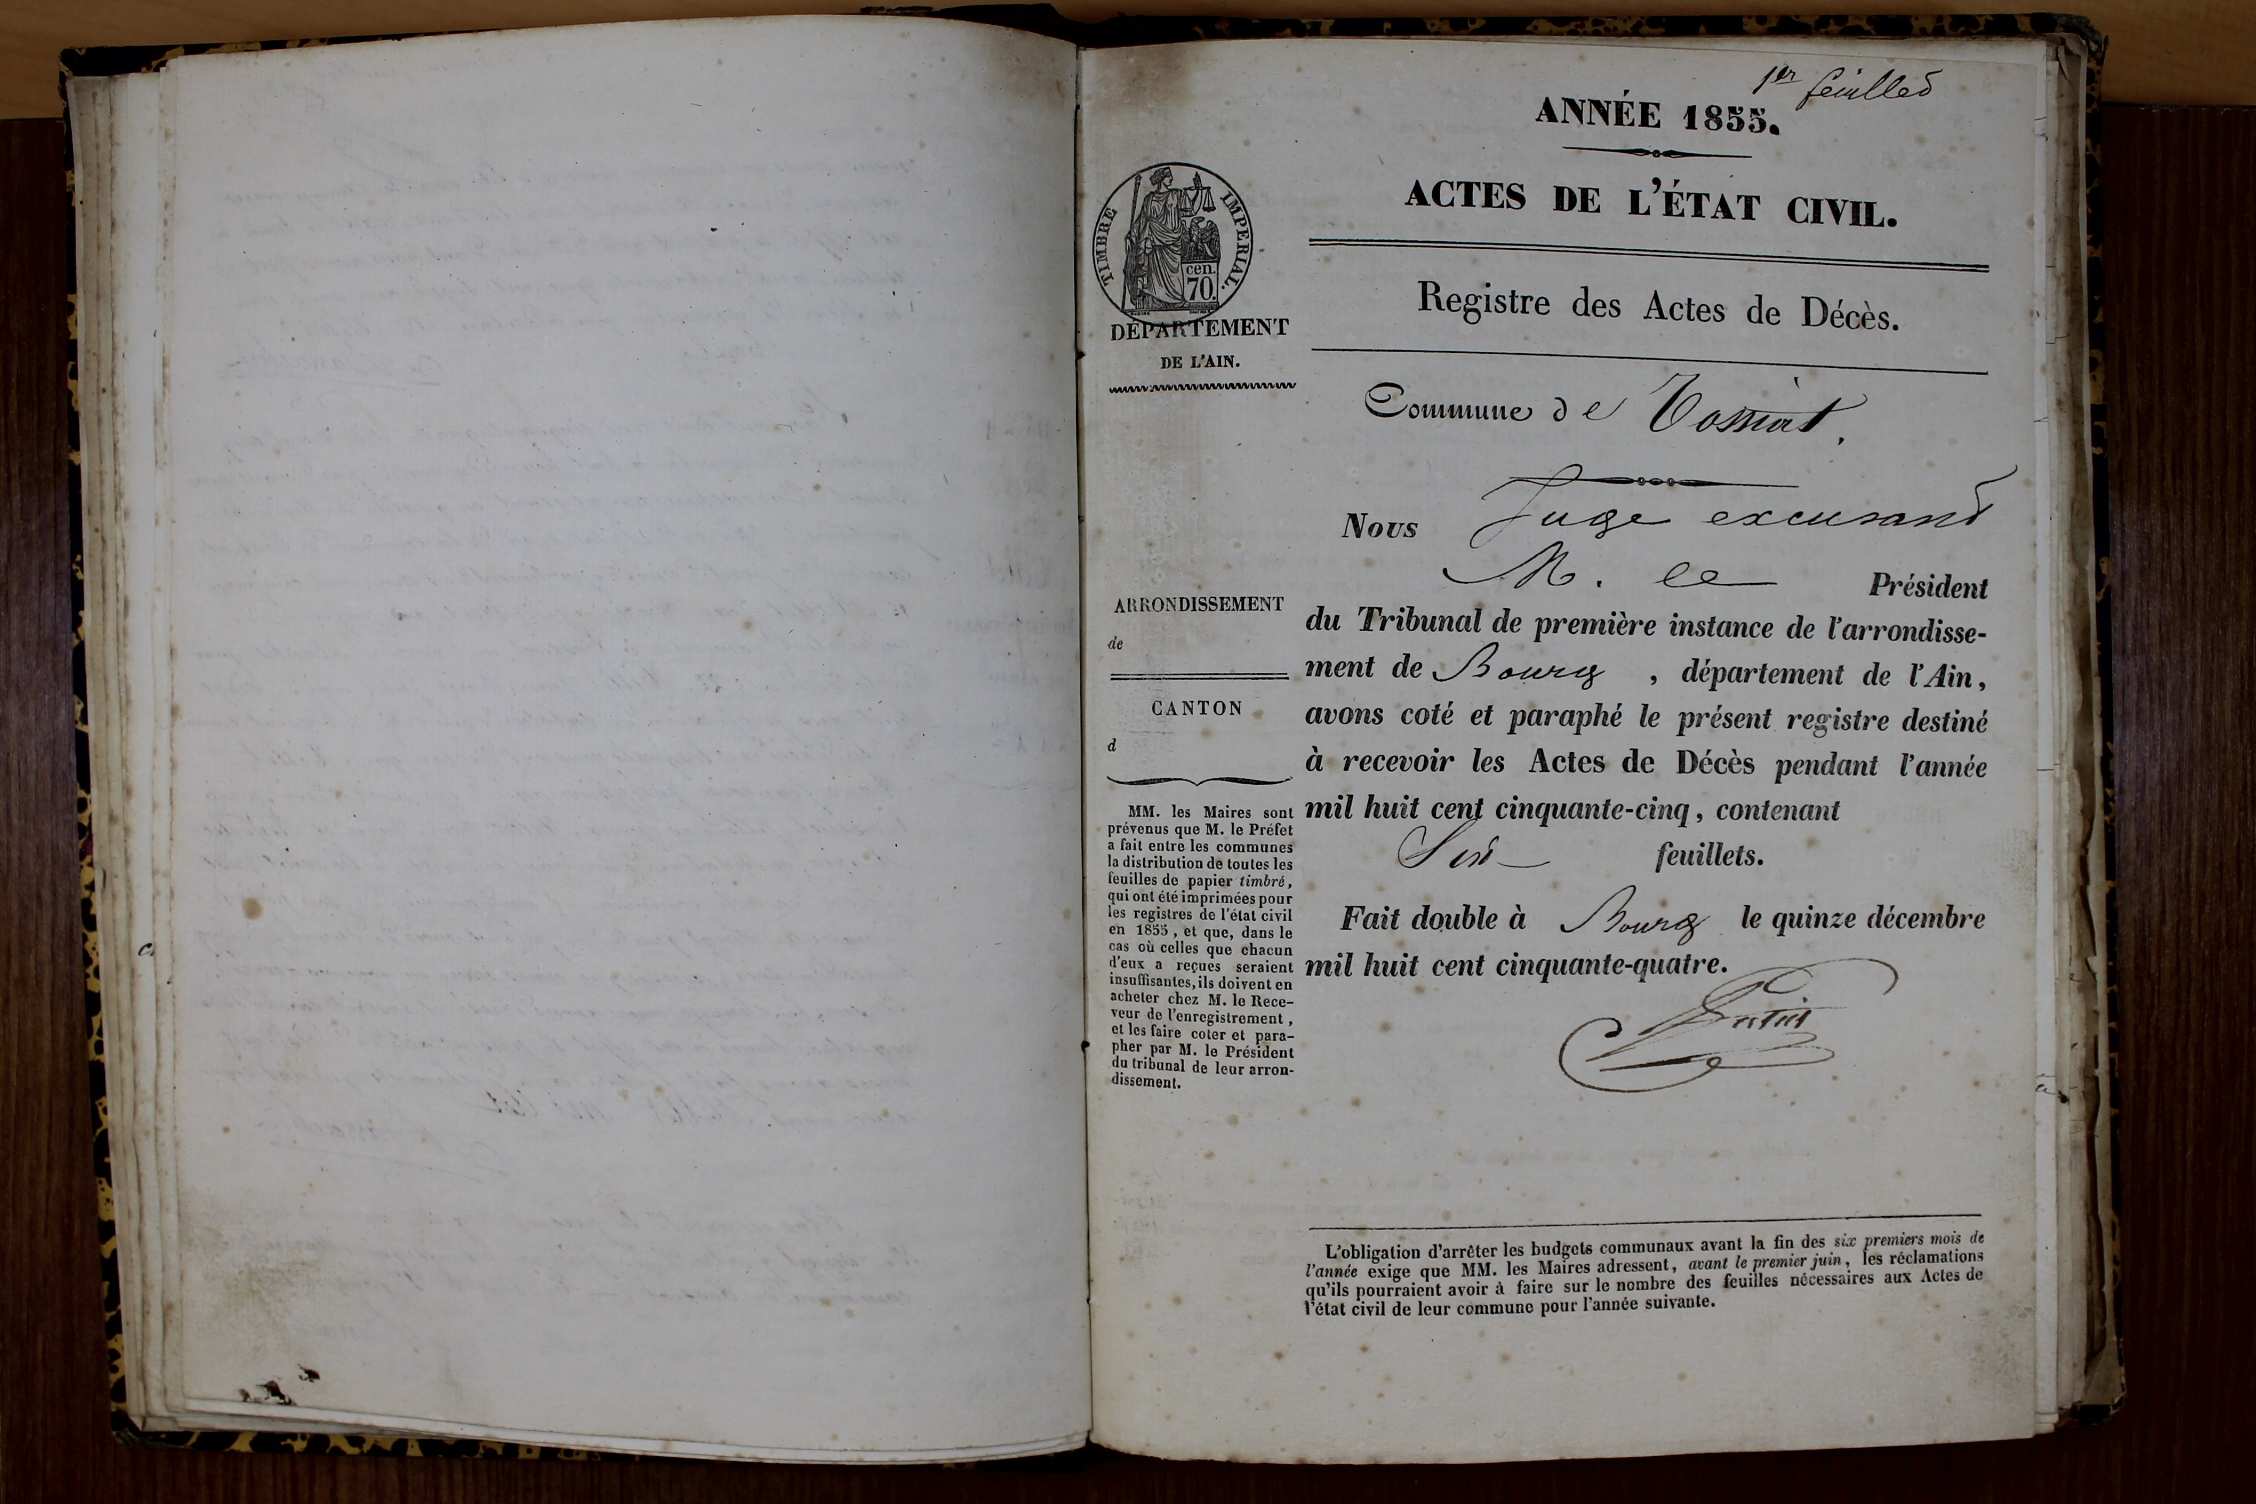 1er feuillet
ANNÉE 1855.
ACTES DE L'ÉTAT CIVIL.
TIMBRE IMPERIAL.
cen.
70.
DÉPARTEMENT
DE L'AIN.
Registre des Actes de Décès.
Commune de Tossiat.
Nous Juge excusant
M. le Président
du Tribunal de première instance de l'arrondisse-
ment de Bourg, département de l'Ain,
avons coté et paraphé le présent registre destiné
à recevoir les Actes de Décès pendant l'année
mil huit cent cinquante-cinq, contenant
Six feuillets.
Fait double à Bourg le quinze décembre
mil huit cent cinquante-quatre.
ARRONDISSEMENT
de
CANTON
d
MM. les Maires sont
prévenus que M. le Préfet
a fait entre les communes
la distribution de toutes les
feuilles de papier timbré,
qui ont été imprimées pour
les registres de l'état civil
en 1855, et que, dans le
cas où celles que chacun
d'eux a reçues seraient
insuffisantes, ils doivent en
acheter chez M. le Rece-
veur de l'enregistrement,
et les faire coter et para-
pher par M. le Président
du tribunal de leur arron-
dissement.
L'obligation d'arrêter les budgets communaux avant la fin des six premiers mois de
l'année exige que MM. les Maires adressent, avant le premier juin, les réclamations
qu'ils pourraient avoir à faire sur le nombre des feuilles nécessaires aux Actes de
l'état civil de leur commune pour l'année suivante.